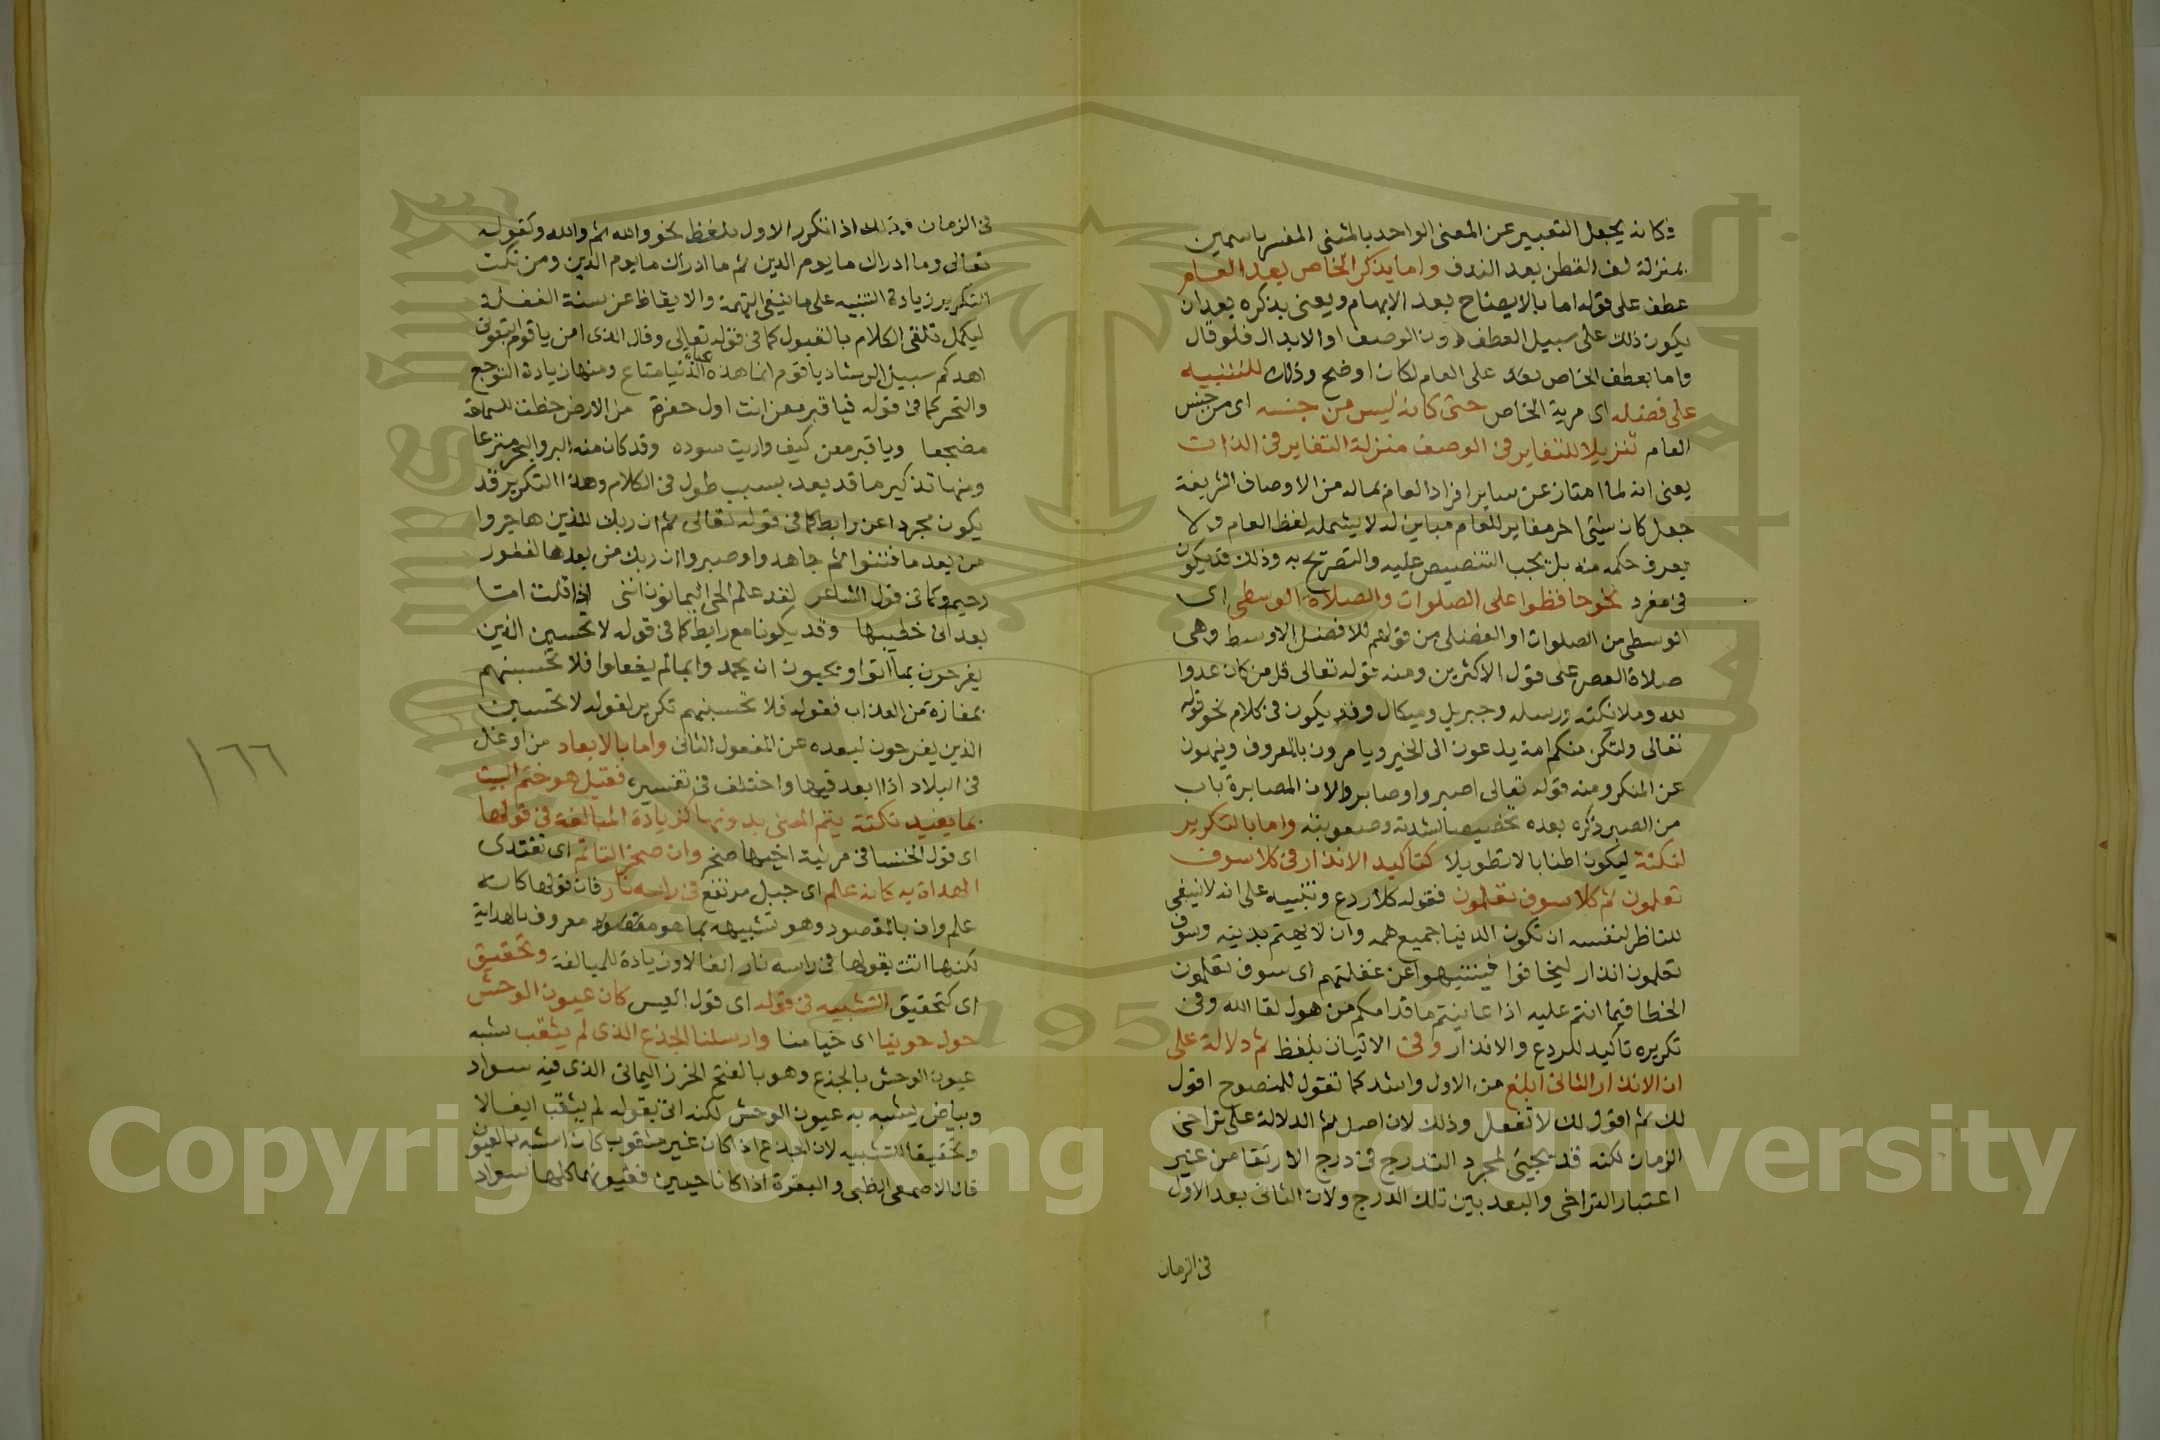 فكانه يجعل التعبير عن المعنى الواحد بالمثنى المفسر باسمين
بمنزلة لف القطن بعد الندف واما بذكر الخاص بعد العام
عطف على قوله اما بالايضاح بعد الابهام ويعنى بذكره بعده ان
يكون ذلك على سبيل العطف دون الوصف او الابدال فلو قال
واما بعطف الخاص بعد على العام لكان اوضح وذلك للتنبيه
على فضله اى مزية الخاص حتى كانه ليس من جنسه اى من جنس
العام تنزيلا للتغاير فى الوصف منزلة التغاير فى الذات
يعنى انه لما امتاز عن ساير افراد العام بماله من الاوصاف الشريفة
جعل كانه شئ اخر مغاير للعام مباين له لا يشمله لفظ العام ولا
يعرف حكمه منه بل يجب التنصيص عليه والتصريح به وذلك قد يكون
فى مفرد نحو حافظوا على الصلوات والصلاة الوسطى اى
الوسطى من الصلوات او الفضلى من قولهم للافضل الاوسط وهى
صلاة العصر على قول الاكثرين ومنه قوله تعالى قل من كان عدوا
لله وملائكته ورسله وجبريل وميكال وقد يكون فى كلام نحو قوله
تعالى ولتكن منكم امة يدعون الى الخير ويامرون بالمعروف وينهون
عن المنكر ومنه قوله تعالى اصبروا وصابروا لان المصابرة باب
من الصبر ذكره بعده تخصيصا لشدته وصعوبته واما بالتكرير
لنكتة ليكون اطنابا لا تطويلا كتاكيد الانذار فى كلا سوف
تعلمون ثم كلا سوف تعلمون فقوله كلا ردع وتنبيه على انه لا ينبغى
للناظر لنفسه ان تكون الدنيا جميع همه وان لا يهتم بدينه وسوف
تعلمون انذار ليخافوا فينتبهوا عن غفلتهم اى سوف تعلمون
الخطا فيما انتم عليه اذا عاينتم ما قدامكم من هول لقا الله وفى
تكريره تاكيد للردع والانذار وفى الاتيان بلفظ ثم دلالة على
ان الانذار الثانى ابلغ من الاول واشد كما تقول للمنصوح اقول
لك ثم اقول لك لا تفعل وذلك لان اصل ثم الدلالة على تراخى
الزمان لكنه قد يجيئ لمجرد التدرج فى درج الارتقا من غير
اعتبار التراخى والبعد بين تلك الدرج ولان الثانى بعد الاول
فى الزمان
فى الزمان وذلك اذا تكرر الاول بلفظ نحو والله ثم والله وكقوله
تعالى وما ادراك ما يوم الدين ثم ما ادراك ما يوم الدين ومن نكت
التكرير زيادة التنبيه على ما ينفى التهمة والايقاظ عن سنة الغفلة
ليكمل تلقى الكلام بالقبول كما فى قوله تعالى وقال الذى امن ياقوم اتبعون
اهدكم سبيل الرشاد ياقوم انما هذه الحياة الدنيا متاع ومنها زيادة التوجع
والتحسر كما فى قوله فيا قبر معن انت اول حفرة من الارض خطت للسماحة
مضجعا ويا قبر معن كيف واريت جوده وقد كان منه البر والبحر مترعا
ومنها تذكير ما قد بعد بسبب طول فى الكلام وهذا التكرير قد
يكون مجردا عن رابط كما فى قوله تعالى ثم ان ربك للذين هاجروا
من بعد ما فتنوا ثم جاهدوا وصبروا ان ربك من بعدها لغفور
رحيم وكما فى قول الشاعر لقد علم الحى اليمانون اننى اذا قلت اما
بعد انى خطيبها وقد يكون مع رابط كما فى قوله لا تحسبن الذين
يفرحون بما اتوا ويحبون ان يحمدوا بما لم يفعلوا فلا تحسبنهم
بمفازة من العذاب فقوله فلا تحسبنهم تكرير لقوله لا تحسبن
الذين يفرحون لبعده عن المفعول الثانى واما بالايغال من اوغل
فى البلاد اذا ابعد فيها واختلف فى تفسيره فقيل هو ختم البيت
بما يفيد نكتة يتم المعنى بدونها كزيادة المبالغة فى قولها
اى قول الخنسا فى مرثية اخيها صخر وان صخرا لتاتم اى تقتدى
الهداة به كانه علم اى جبل مرتفع فى راسه نار فان قولها كانه
علم واف بالمقصود وهو تشبيهه بما هو معروف بالهداية
لكنها اتت بقولها فى راسه نار ايغالا وزيادة للمبالغة وتحقيق
اى كتحقيق التشبيه فى قوله اى قول القيس كان عيون الوحش
حول خبائنا اى خيامنا وارحلنا الجزع الذى لم يثقب شبه
عيون الوحش بالجزع وهو بالفتح الخرز اليمانى الذى فيه سواد
وبياض يشبه به عيون الوحش لكنه اتى بقوله لم يثقب ايغالا
وتحقيقا للتشبيه لان الجذع اذا كان غير مثقوب كان اشبه بالعيون
قال الاصمعى الظبى والبقرة اذا كانا حيين فعيونهما كلها سواد
١٦٦
1957
Copyright © King Saud University